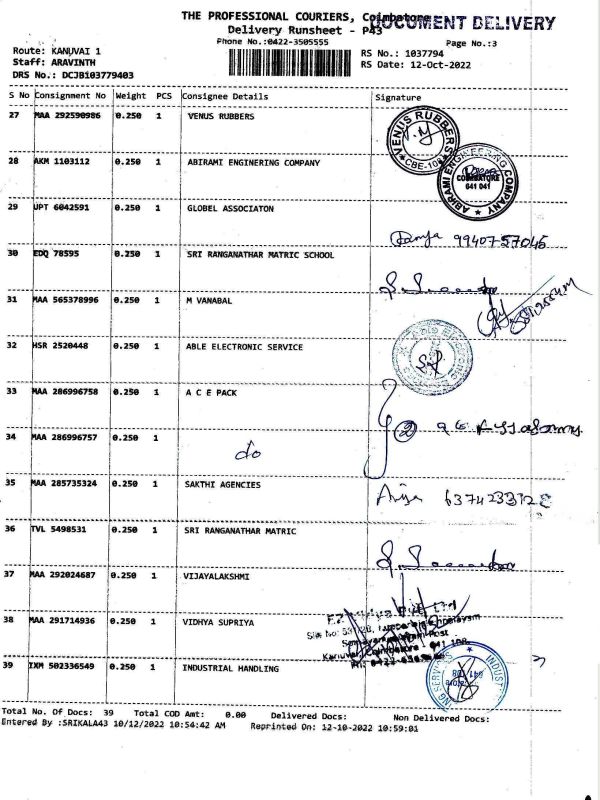 THE PROFESSIONAL COURIERS, Coimbatore
DOCUMENT DELIVERY
Delivery Runsheet - P43
Phone No.:0422-3505555
Page No.:3
Route: KANUVAI 1
RS No.: 1037794
Staff: ARAVINTH
RS Date: 12-Oct-2022
DRS No.: DCJB103779403
S No Consignment No Weight PCS Consignee Details Signature
27 MAA 292590986 0.250 1 VENUS RUBBERS
VENUS RUBBERS
CBE-108
28 AKM 1103112 0.250 1 ABIRAMI ENGINERING COMPANY
ABIRAMI ENGINEERING COMPANY
COIMBATORE
641 041
29 UPT 6042591 0.250 1 GLOBEL ASSOCIATON
9940757045
30 EDQ 78595 0.250 1 SRI RANGANATHAR MATRIC SCHOOL
31 MAA 565378996 0.250 1 M VANABAL
32 HSR 2520448 0.250 1 ABLE ELECTRONIC SERVICE
33 MAA 286996758 0.250 1 A C E PACK
2
34 MAA 286996757 0.250 1
do
35 MAA 285735324 0.250 1 SAKTHI AGENCIES
36 TVL 5498531 0.250 1 SRI RANGANATHAR MATRIC
37 MAA 292024687 0.250 1 VIJAYALAKSHMI
38 MAA 291714936 0.250 1 VIDHYA SUPRIYA
39 IXM 502336549 0.250 1 INDUSTRIAL HANDLING
Total No. Of Docs: 39 Total COD Amt: 0.00 Delivered Docs: Non Delivered Docs:
Entered By :SRIKALA43 10/12/2022 10:54:42 AM Reprinted On: 12-10-2022 10:59:01